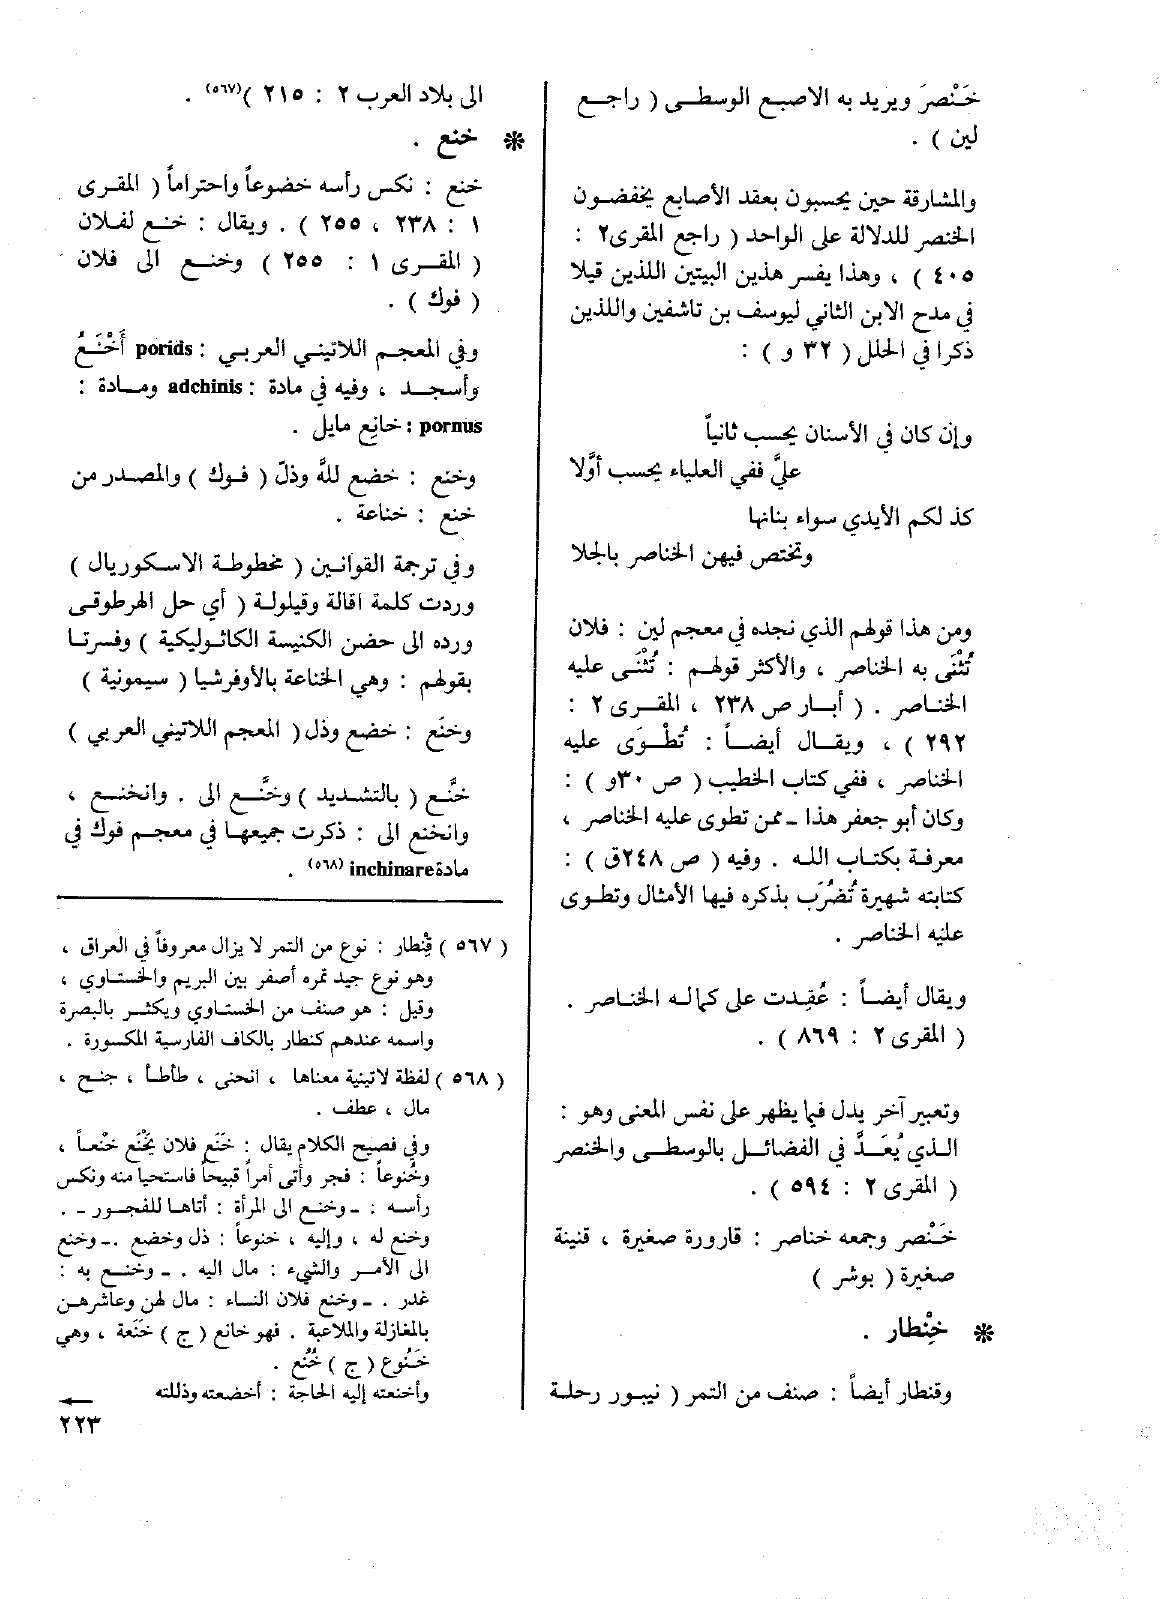 خَنْصَر ويريد به الاصبع الوسطى ( راجع
لين ) .
والمشارقة حين يحسبون بعقد الأصابع يخفضون
الخنصر للدلالة على الواحد ( راجع المقرى٢ :
٤٠٥ ) ، وهذا يفسر هذين البيتين اللذين قيلا
في مدح الابن الثاني ليوسف بن تاشفين واللذين
ذكرا في الحلل ( ٣٢ و ) :
وإن كان في الأسنان يحسب ثانياً
عليَّ ففي العلياء يحسب أوَّلا
كذ لكم الأيدي سواء بنانها
وتختص فيهن الخناصر بالجلا
ومن هذا قولهم الذي نجده في معجم لين : فلان
تُثْنَى به الخناصر ، والأكثر قولهم : تُثْنَى عليه
الخناصر . ( أبار ص ٢٣٨ ، المقرى ٢ :
٢٩٢ ) ، ويقال أيضاً : تُطْوَى عليه
الخناصر ، ففي كتاب الخطيب ( ص ٣٠و ) :
وكان أبو جعفر هذا ـ ممن تطوى عليه الخناصر ،
معرفة بكتاب الله . وفيه ( ص ٢٤٨ق ) :
كتابته شهيرة تُضْرَب بذكره فيها الأمثال وتطوى
عليه الخناصر .
ويقال أيضاً : عُقِدت على كماله الخناصر .
( المقرى ٢ : ٨٦٩ ) .
وتعبير آخر يدل فيما يظهر على نفس المعنى وهو :
الذي يُعَدَّ في الفضائل بالوسطى والخنصر
( المقرى ٢ : ٥٩٤ ) .
خَنْصر وجمعه خناصر : قارورة صغيرة ، قنينة
صغيرة ( بوشر )
* خِنْطار .
وقنطار أيضاً : صنف من التمر ( نيبور رحلة
الى بلاد العرب ٢ : ٢١٥ )(٥٦٧) .
* خنع .
خنع : نكس رأسه خضوعاً واحتراماً ( المقرى
١ : ٢٣٨ ، ٢٥٥ ) . ويقال : خنع لفلان
( المقرى ١ : ٢٥٥ ) وخنع الى فلان
( فوك ) .
وفي المعجم اللاتيني العربي : porids أَخْنَعُ
وأسجد ، وفيه في مادة : adchinis ومادة :
pornus : خانِع مايل .
وخنع : خضع للهَّ وذلّ ( فوك ) والمصدر من
خنع : خناعة .
وفي ترجمة القوانين ( مخطوطة الاسكوريال )
وردت كلمة اقالة وقيلولة ( أي حل الهرطوقى
ورده الى حضن الكنيسة الكاثوليكية ) وفسرتا
بقولهم : وهي الخناعة بالأوفرشيا ( سيمونية )
وخنَع : خضع وذل ( المعجم اللاتيني العربي )
خنَّع ( بالتشديد ) وخنَّع الى . وانخنع ،
وانخنع الى : ذكرت جميعها في معجم فوك في
مادة inchinare (٥٦٨) .
( ٥٦٧ ) قِنْطار : نوع من التمر لا يزال معروفاً في العراق ،
وهو نوع جيد تمره أصفر بين البريم والخستاوي ،
وقيل : هو صنف من الخستاوي ويكثر بالبصرة
واسمه عندهم كنطار بالكاف الفارسية المكسورة .
( ٥٦٨ ) لفظة لاتينية معناها ، انحنى ، طأطأ ، جنح ،
مال ، عطف .
وفي فصيح الكلام يقال : خَنَع فلان يَخْنَع خنْعاً ،
وخُنوعاً : فجر وأتى أمراً قبيحاً فاستحيا منه ونكس
رأسه : ـ وخنع الى المرأة : أتاها للفجور ـ .
وخنع له ، وإليه ، خنوعاً : ذل وخضع .ـ وخنع
الى الأمر والشيء : مال اليه . ـ وخنع به :
غدر . ـ وخنع فلان النساء : مال لهن وعاشرهن
بالمغازلة والملاعبة . فهو خانع ( ج ) خَنَعة ، وهي
خَنُوع ( ج ) خُنُع .
وأخنعته إليه الحاجة : أخضعته وذللته
←
٢٢٣